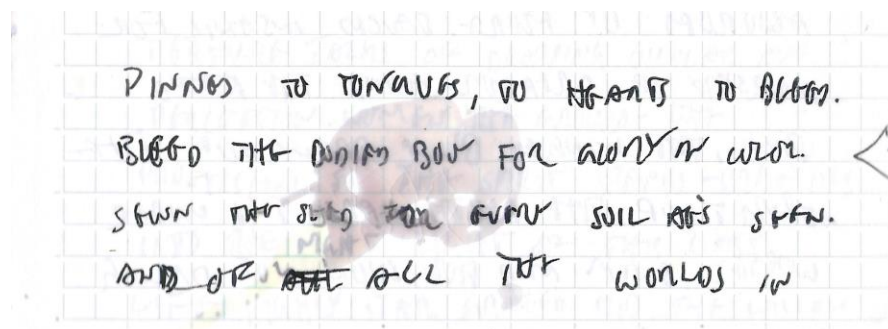 PINNED TO TONGUES, TO HEARTS TO BLEED.
BLEED THE BODIES BODY FOR GLORY N COLOR.
SEWN THE SEED FOR EVERY SOIL HE'S SEEN.
AND OF ALL THE WORLDS IN